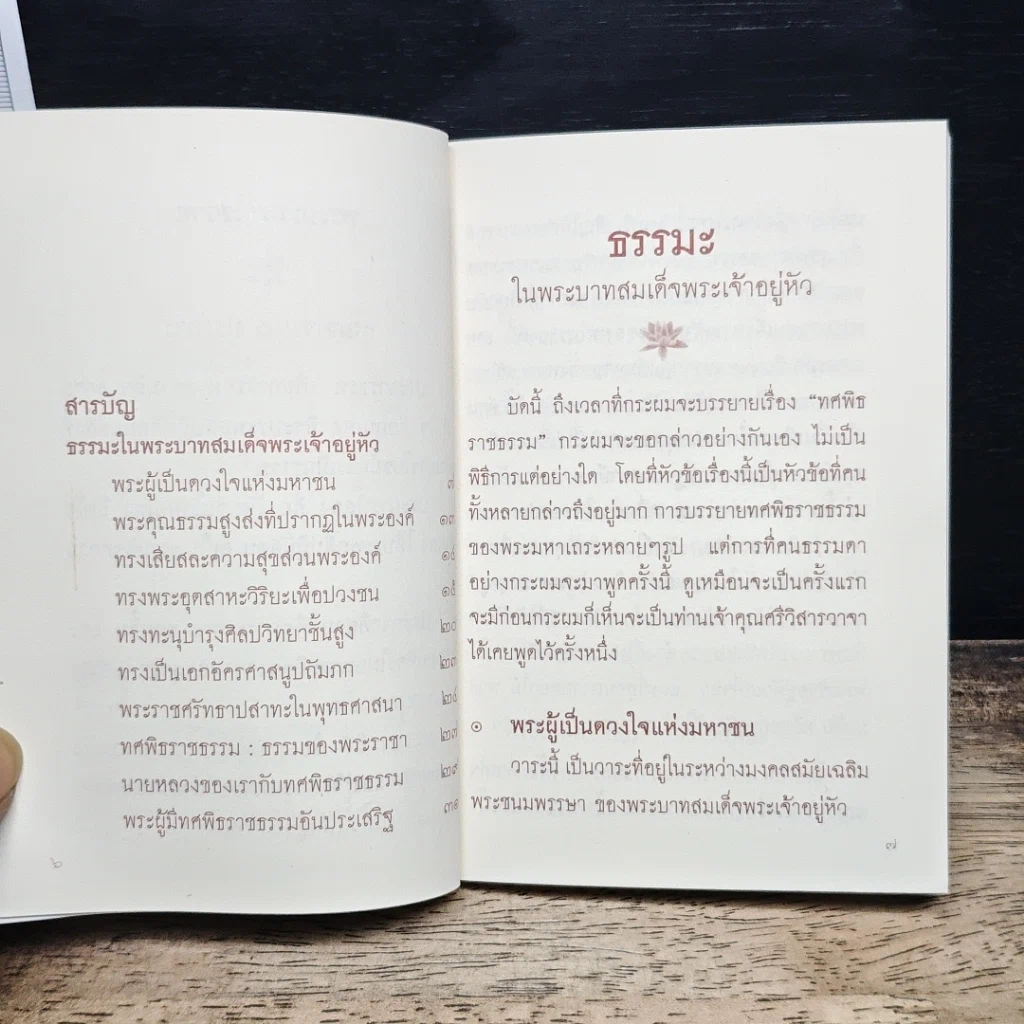 สารบัญ
ธรรมะในพระบาทสมเด็จพระเจ้าอยู่หัว
พระผู้เป็นดวงใจแห่งมหาชน ๗
พระคุณธรรมสูงส่งที่ปรากฏในพระองค์ ๑๓
ทรงเสียสละความสุขส่วนพระองค์
ทรงพระอุตสาหะวิริยะเพื่อปวงชน
ทรงทะนุบำรุงศิลปวิทยาชั้นสูง ๒๐
ทรงเป็นเอกอัครศาสนูปถัมภก ๒๓
พระราชศรัทธาปสาทะในพุทธศาสนา
ทศพิธราชธรรม : ธรรมของพระราชา ๒๗
นายหลวงของเรากับทศพิธราชธรรม ๒๙
พระผู้มีทศพิธราชธรรมอันประเสริฐ
๖
ธรรมะ
ในพระบาทสมเด็จพระเจ้าอยู่หัว
บัดนี้ ถึงเวลาที่กระผมจะบรรยายเรื่อง “ทศพิธ
ราชธรรม” กระผมจะขอกล่าวอย่างกันเอง ไม่เป็น
พิธีการแต่อย่างใด โดยที่หัวข้อเรื่องนี้เป็นหัวข้อที่คน
ทั้งหลายกล่าวถึงอยู่มาก การบรรยายทศพิธราชธรรม
ของพระมหาเถระหลายๆรูป แต่การที่คนธรรมดา
อย่างกระผมจะมาพูดครั้งนี้ ดูเหมือนจะเป็นครั้งแรก
จะมีก่อนกระผมก็เห็นจะเป็นท่านเจ้าคุณศรีวิสารวาจา
ได้เคยพูดไว้ครั้งหนึ่ง
๑ พระผู้เป็นดวงใจแห่งมหาชน
วาระนี้ เป็นวาระที่อยู่ในระหว่างมงคลสมัยเฉลิม
พระชนมพรรษา ของพระบาทสมเด็จพระเจ้าอยู่หัว
๗